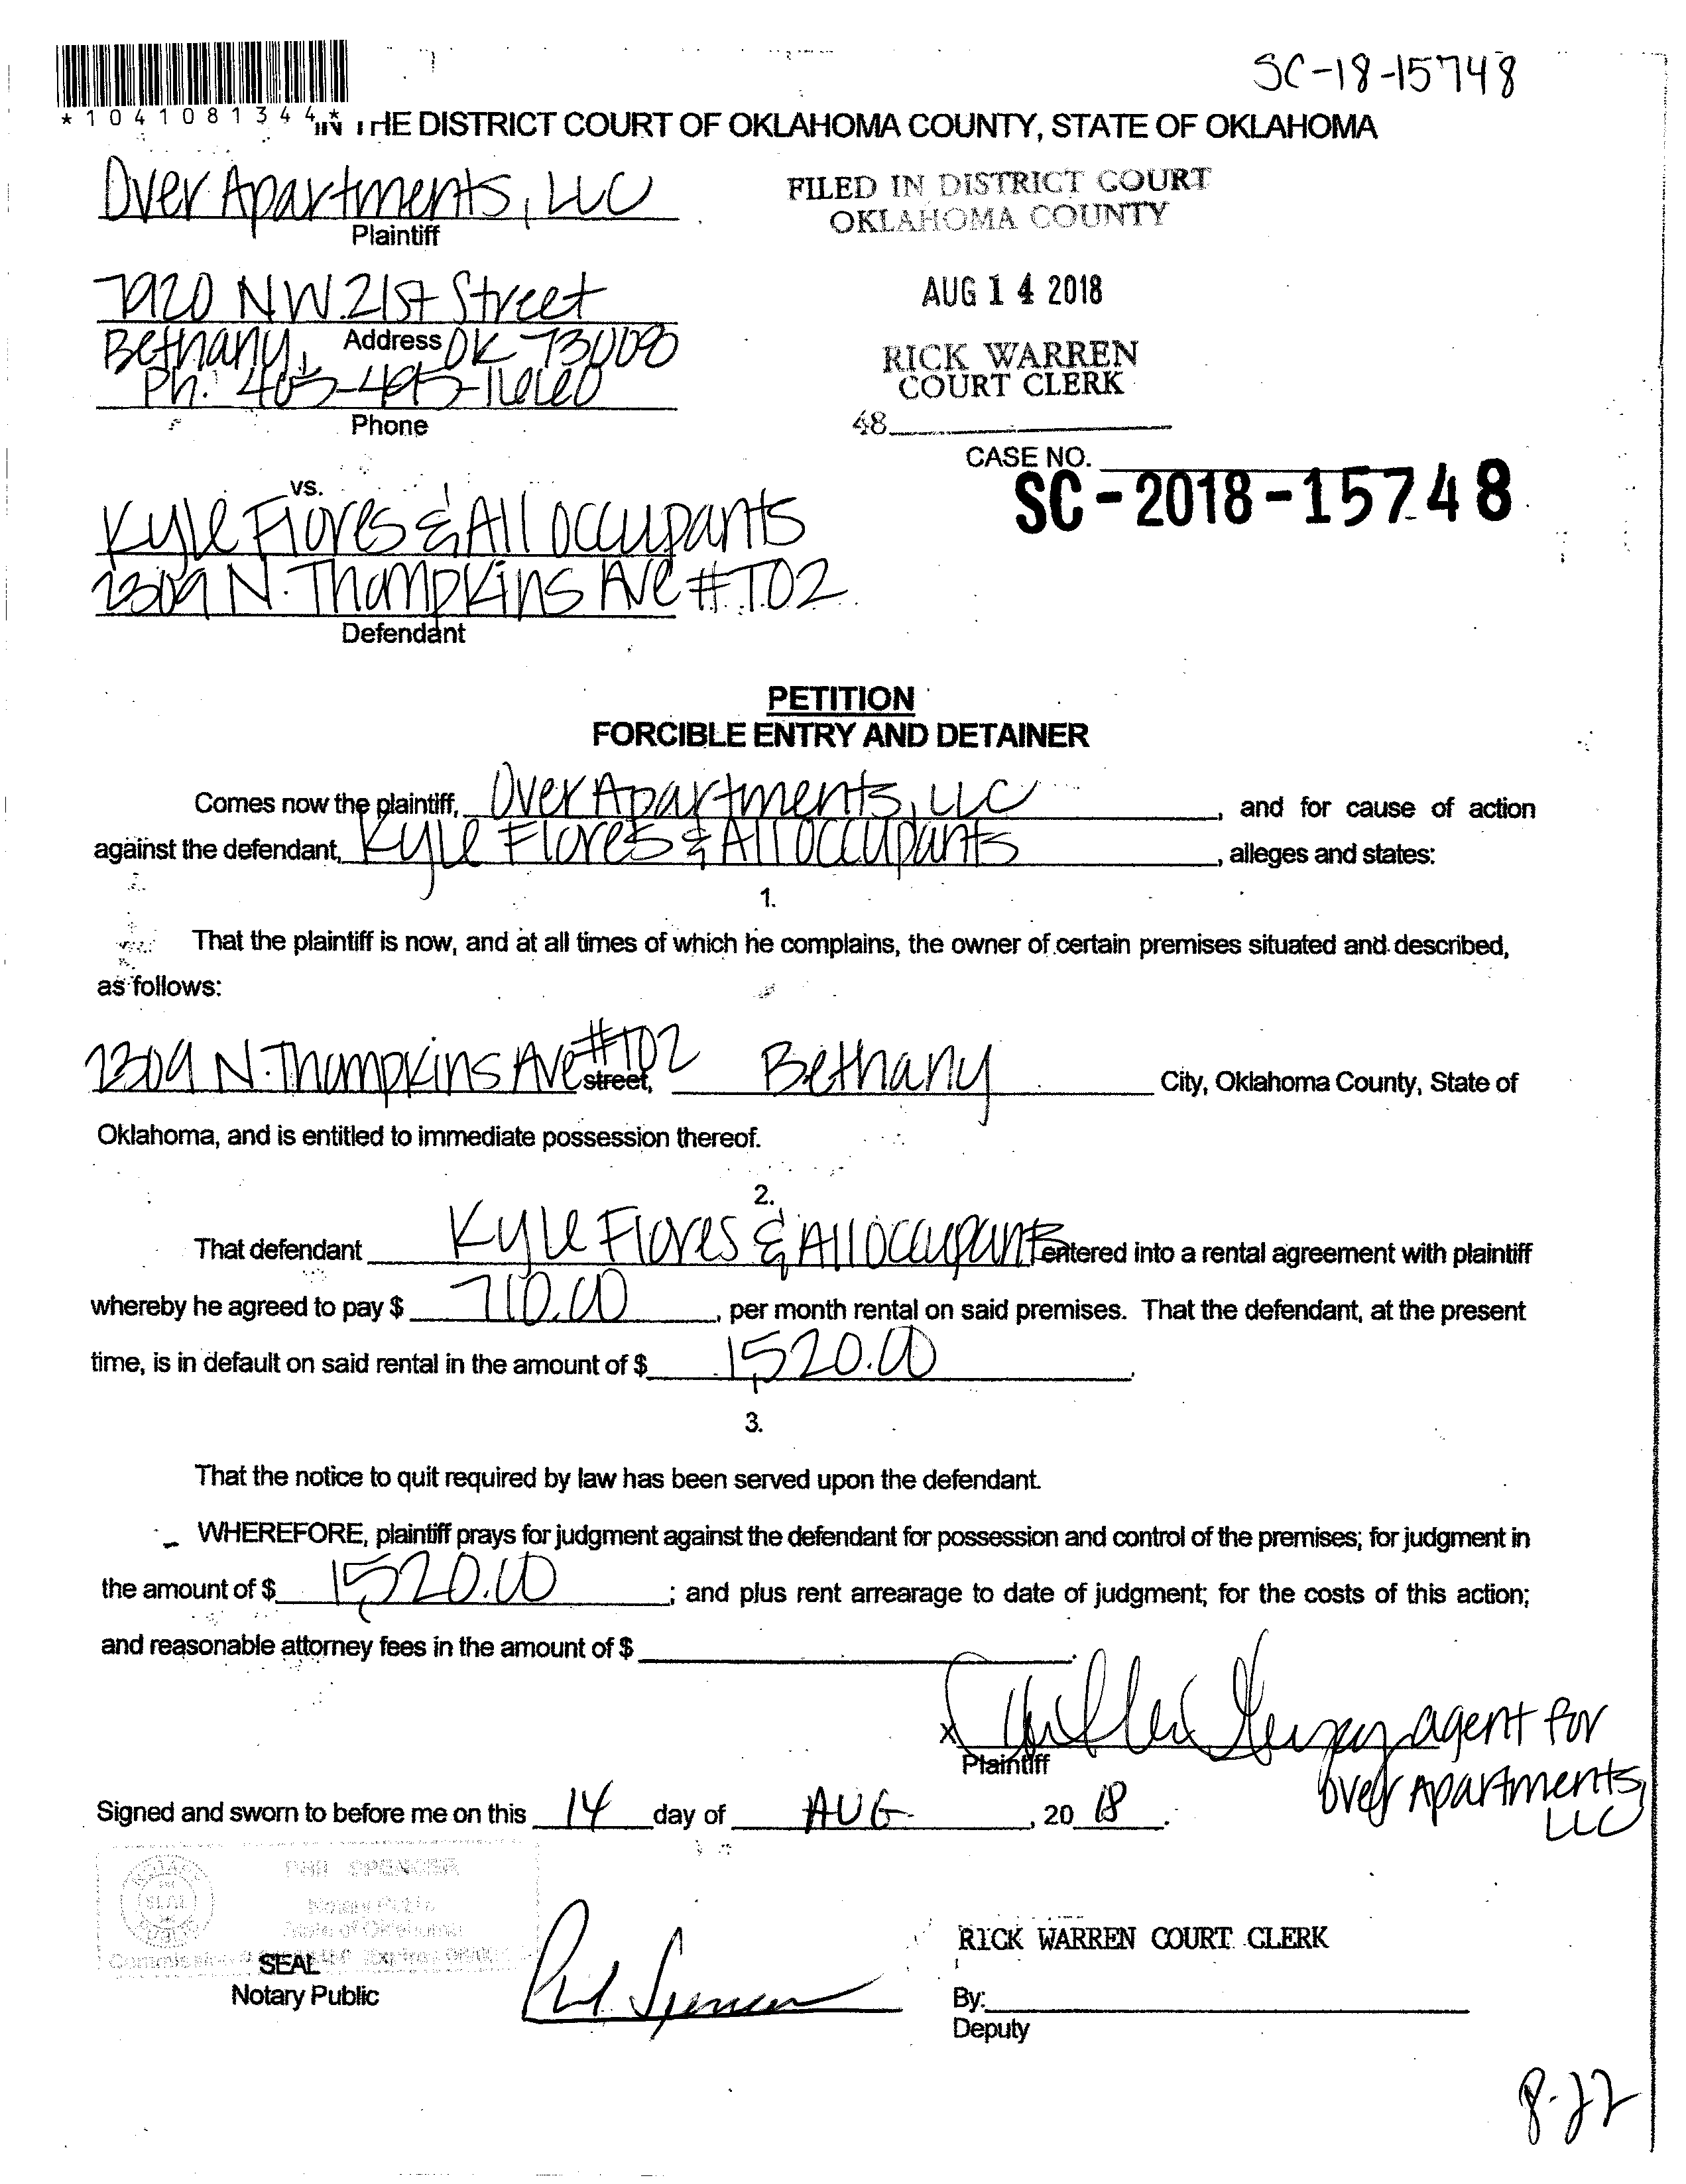 SC-18-15748
*1041081344*
IN THE DISTRICT COURT OF OKLAHOMA COUNTY, STATE OF OKLAHOMA
Over Apartments, LLC
Plaintiff
FILED IN DISTRICT COURT
OKLAHOMA COUNTY
7920 N.W. 21st Street
AUG 14 2018
Address
Bethany, OK 73008
RICK WARREN
COURT CLERK
Ph. 405-495-1660
Phone
48
CASE NO.
SC-2018-15748
vs.
Kyle Flores & All occupants
2309 N. Thompkins Ave #T02
Defendant
PETITION
FORCIBLE ENTRY AND DETAINER
Comes now the plaintiff, Over Apartments, LLC, and for cause of action
against the defendant, Kyle Flores & All occupants, alleges and states:
1.
That the plaintiff is now, and at all times of which he complains, the owner of certain premises situated and described,
as follows:
2309 N. Thompkins Ave #T02 street, Bethany City, Oklahoma County, State of
Oklahoma, and is entitled to immediate possession thereof.
2.
That defendant Kyle Flores & All occupants entered into a rental agreement with plaintiff
whereby he agreed to pay $ 710.00, per month rental on said premises. That the defendant, at the present
time, is in default on said rental in the amount of $ 1,520.00.
3.
That the notice to quit required by law has been served upon the defendant.
WHEREFORE, plaintiff prays for judgment against the defendant for possession and control of the premises; for judgment in
the amount of $ 1,520.00; and plus rent arrearage to date of judgment; for the costs of this action;
and reasonable attorney fees in the amount of $
x agent for
Plaintiff
Over Apartments,
LLC
Signed and sworn to before me on this 14 day of AUG., 2018.
PHIL SPENCER
Notary Public
State of Oklahoma
SEAL
Notary Public
Phil Spencer
RICK WARREN COURT CLERK
By:
Deputy
8-22